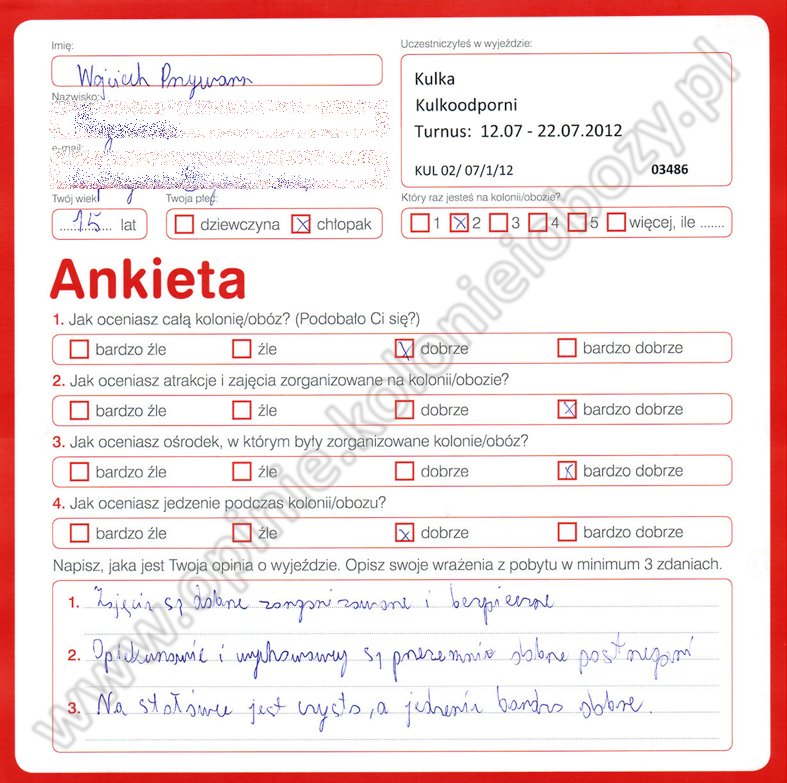 Imię:
Wojciech
Nazwisko:
e-mail:
Twój wiek:
15 lat
Twoja płeć:
dziewczyna chłopak
Uczestniczyłeś w wyjeździe:
Kulka
Kulkoodporni
Turnus: 12.07 - 22.07.2012
KUL 02/ 07/1/12 03486
Który raz jesteś na kolonii/obozie?
1 2 3 4 5 więcej, ile .......
Ankieta
1. Jak oceniasz całą kolonię/obóz? (Podobało Ci się?)
bardzo źle źle dobrze bardzo dobrze
2. Jak oceniasz atrakcje i zajęcia zorganizowane na kolonii/obozie?
bardzo źle źle dobrze bardzo dobrze
3. Jak oceniasz ośrodek, w którym były zorganizowane kolonie/obóz?
bardzo źle źle dobrze bardzo dobrze
4. Jak oceniasz jedzenie podczas kolonii/obozu?
bardzo źle źle dobrze bardzo dobrze
Napisz, jaka jest Twoja opinia o wyjeździe. Opisz swoje wrażenia z pobytu w minimum 3 zdaniach.
1. Zajęcia są dobrze zorganizowane i bezpieczne
2. Opiekunowie i wychowawcy są przezemnie dobrze postrzegani
3. Na stołówce jest czysto, a jedzenie bardzo dobre.
www.opinie.kolonieiobozy.pl